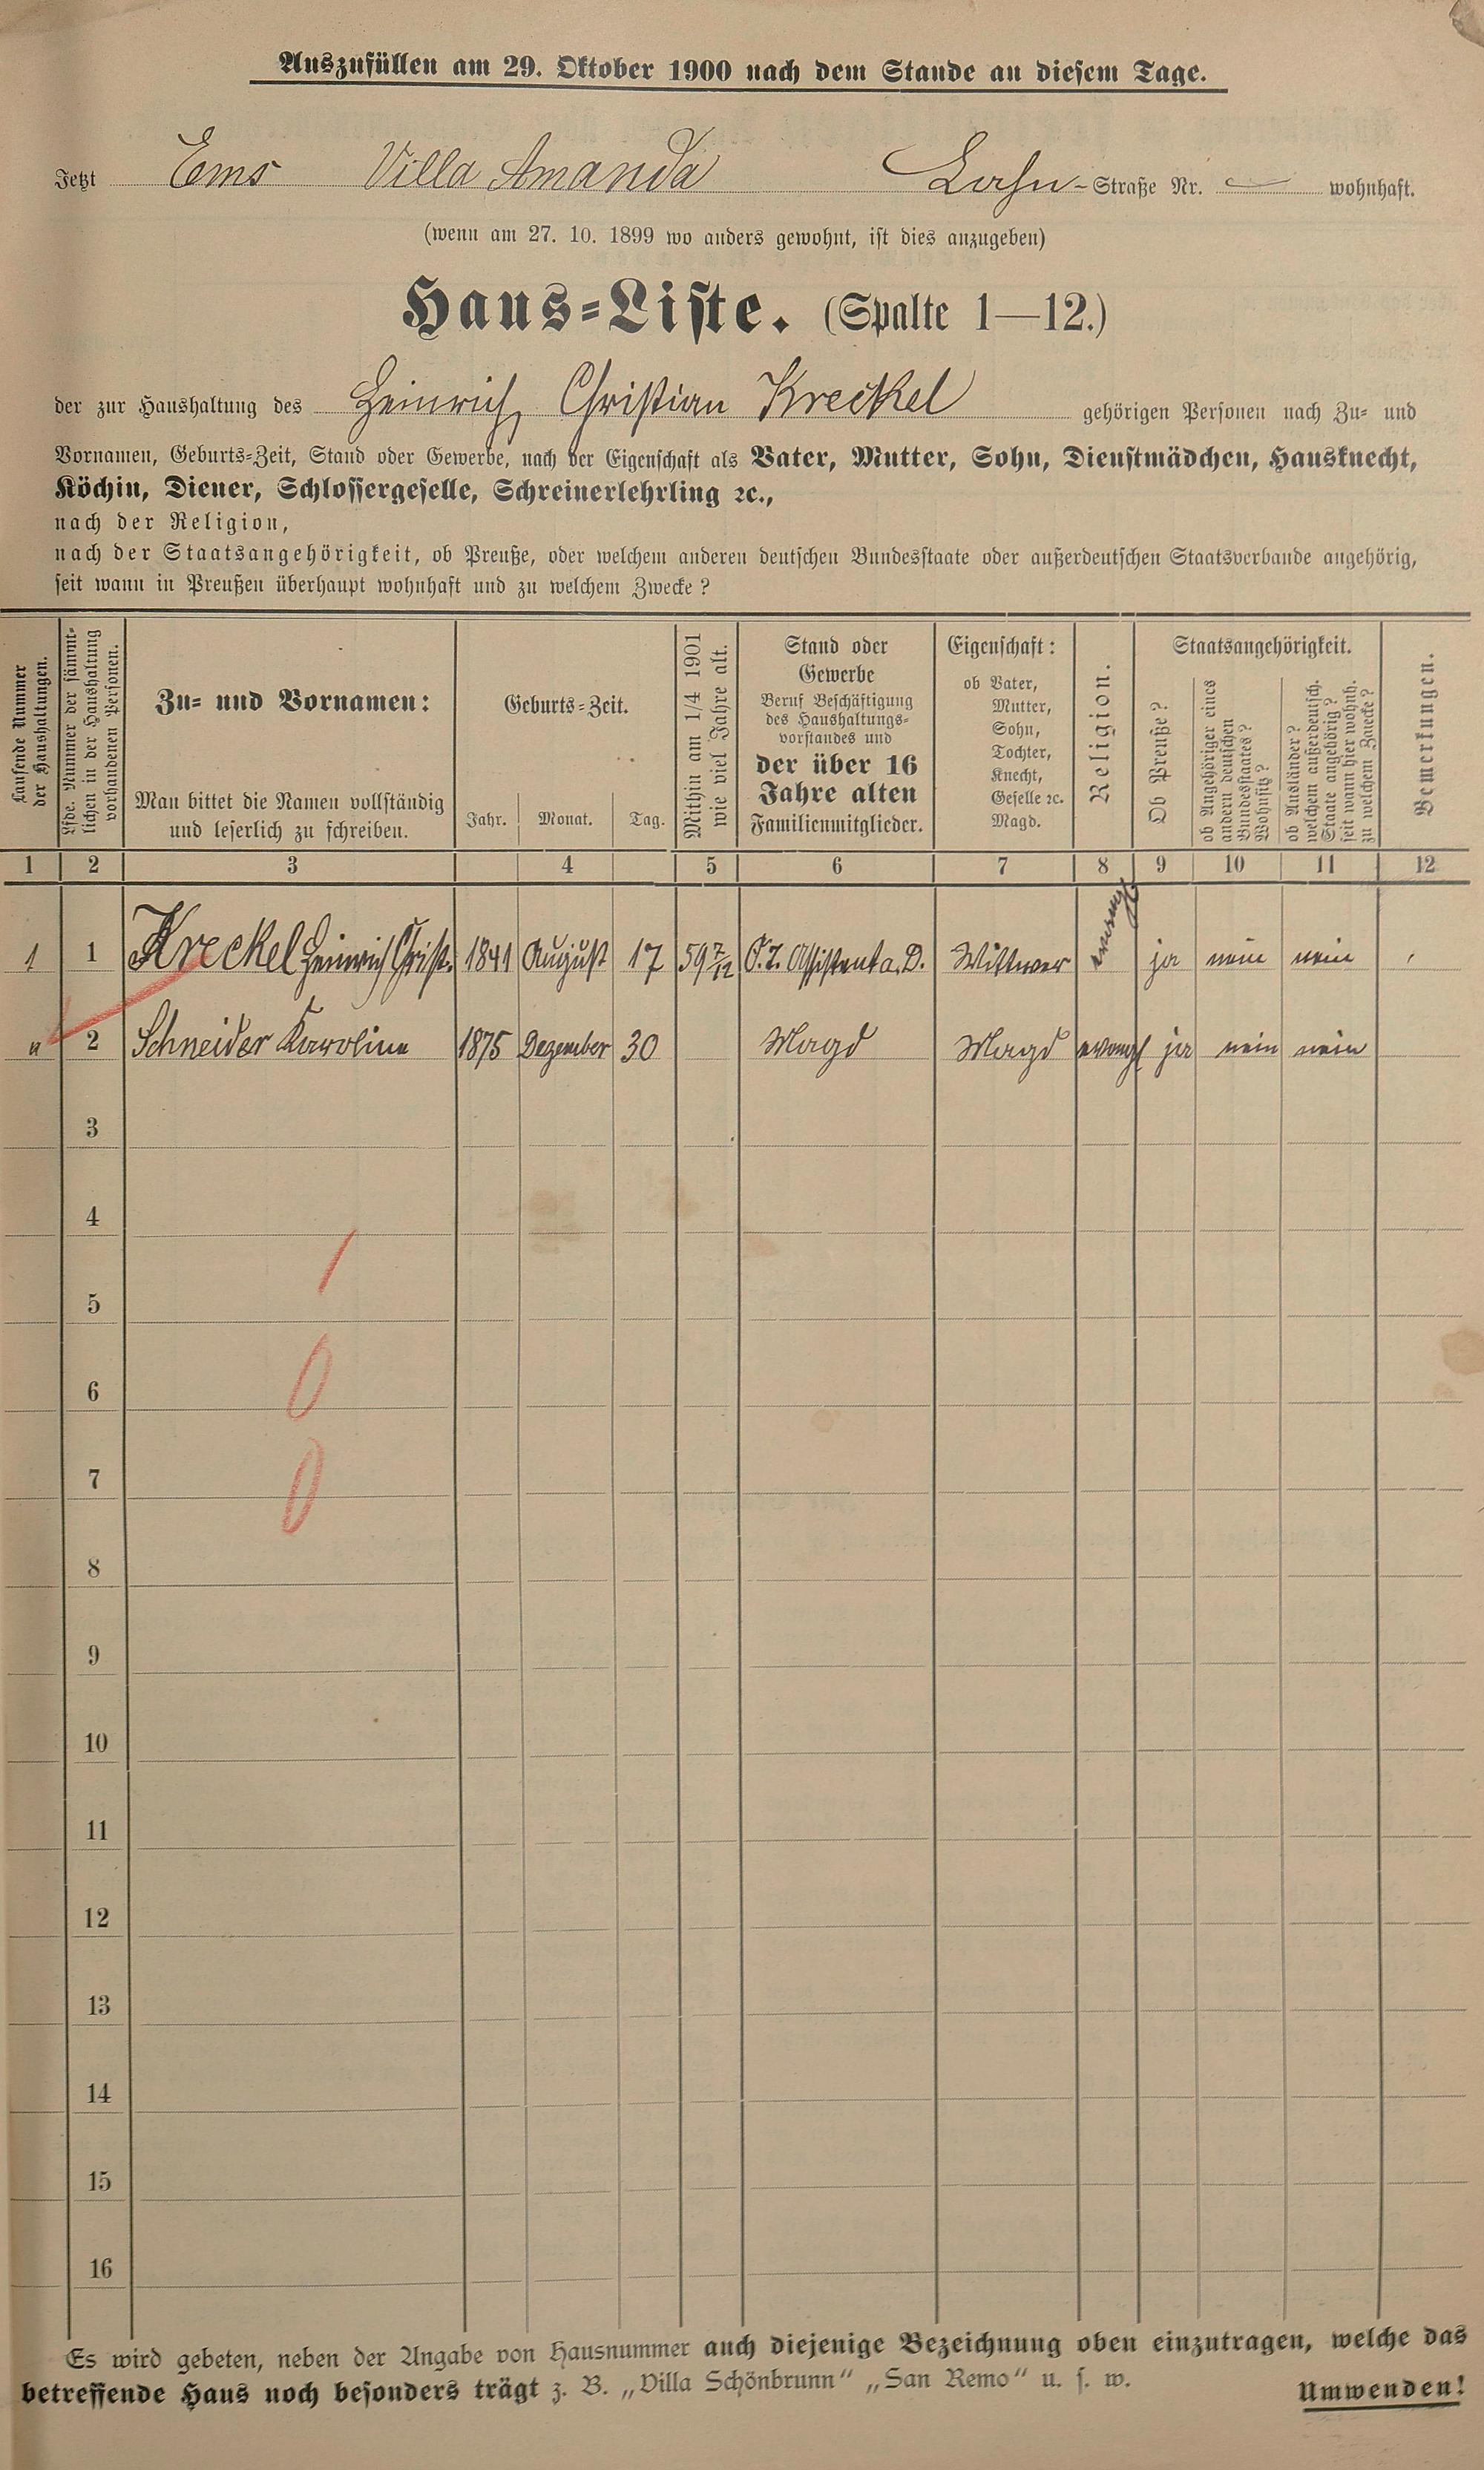 Auszufüllen am 29. Oktober 1900 nach dem Stande an diesem Tage.
Jetzt Ems Villa Amanda Lahn-Straße Nr. — wohnhaft.
(wenn am 27. 10. 1899 wo anders gewohnt, ist dies anzugeben)
Haus-Liste. (Spalte 1—12.)
der zur Haushaltung des Heinrich Christian Kreckel gehörigen Personen nach Zu- und
Vornamen, Geburts-Zeit, Stand oder Gewerbe, nach der Eigenschaft als Vater, Mutter, Sohn, Dienstmädchen, Hausknecht,
Köchin, Diener, Schlossergeselle, Schreinerlehrling ꝛc.,
nach der Religion,
nach der Staatsangehörigkeit, ob Preuße, oder welchem anderen deutschen Bundesstaate oder außerdeutschen Staatsverbande angehörig,
seit wann in Preußen überhaupt wohnhaft und zu welchem Zwecke?
Laufende Nummer
der Haushaltungen.
Lfde. Nummer der sämmt-
lichen in der Haushaltung
vorhandenen Personen.
Zu- und Vornamen:
Man bittet die Namen vollständig
und leserlich zu schreiben.
Geburts-Zeit.
Jahr. Monat. Tag.
Mithin am 1/4 1901
wie viel Jahre alt.
Stand oder
Gewerbe
Beruf Beschäftigung
des Haushaltungs-
vorstandes und
der über 16
Jahre alten
Familienmitglieder.
Eigenschaft:
ob Vater,
Mutter,
Sohn,
Tochter,
Knecht,
Geselle ꝛc.
Magd.
Religion.
Staatsangehörigkeit.
Ob Preuße?
ob Angehöriger eines
andern deutschen
Bundesstaates?
Wohnsitz?
ob Ausländer?
welchem außerdeutsch.
Staate angehörig?
seit wann hier wohnh.
zu welchem Zwecke?
Bemerkungen.
1 2 3 4 5 6 7 8 9 10 11 12
1 1 Kreckel Heinrich Christ. 1841 August 17 59 7/12 Assistent a. D. Wittwer evang. ja nein nein
" 2 Schneider Karoline 1875 Dezember 30 Magd Magd evangl ja nein nein
3
4
5
6
7
8
9
10
11
12
13
14
15
16
1
0
0
Es wird gebeten, neben der Angabe von Hausnummer auch diejenige Bezeichnung oben einzutragen, welche das
betreffende Haus noch besonders trägt z. B. „Villa Schönbrunn“ „San Remo“ u. s. w.
Umwenden!